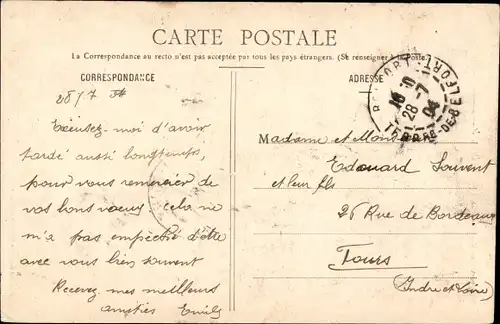 CARTE POSTALE
La Correspondance au recto n'est pas acceptée par tous les pays étrangers. (Se renseigner à la Poste.)
CORRESPONDANCE
ADRESSE
28/7
BELFORT
16 10
28-7
04
TERRE-DE-BELFORT
Excusez-moi d'avoir
tardé aussi longtemps,
pour vous remercier de
vos bons voeux; cela ne
m'a pas empêché d'être
avec vous bien souvent
Recevez mes meilleurs
amitiés Emile
Madame et
Edouard Souvent
et leur fils
26 Rue de Bordeaux
Tours
(Indre et Loire)